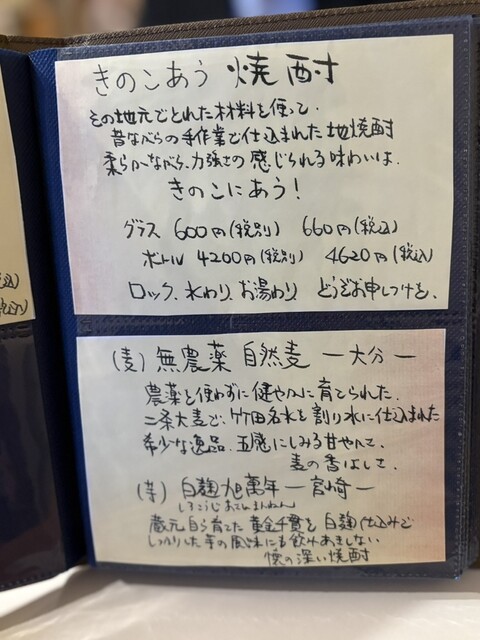 きのこあう 焼酎
その地元でとれた材料を使って、
昔ながらの手作業で仕込まれた地焼酎
柔らかながら、力強さの感じられる味わいは、
きのこにあう!
グラス 600円(税別) 660円(税込)
ボトル 4200円(税別) 4620円(税込)
ロック、水わり、お湯わり どうぞお申しつけを、
(麦) 無農薬 自然麦 ー大分ー
農薬を使わずに健やかに育てられた、
二条大麦で、竹田名水を割り水に仕込まれた
希少な逸品、五感にしみる甘やかさ、
麦の香ばしさ、
(芋) 白麹旭萬年 ー宮崎ー
しろこうじあさひまんねん
蔵元自ら育てた黄金千貫を白麹仕込みで
しっかりした芋の風味にも飲みあきしない
懐の深い焼酎
込)
税込)